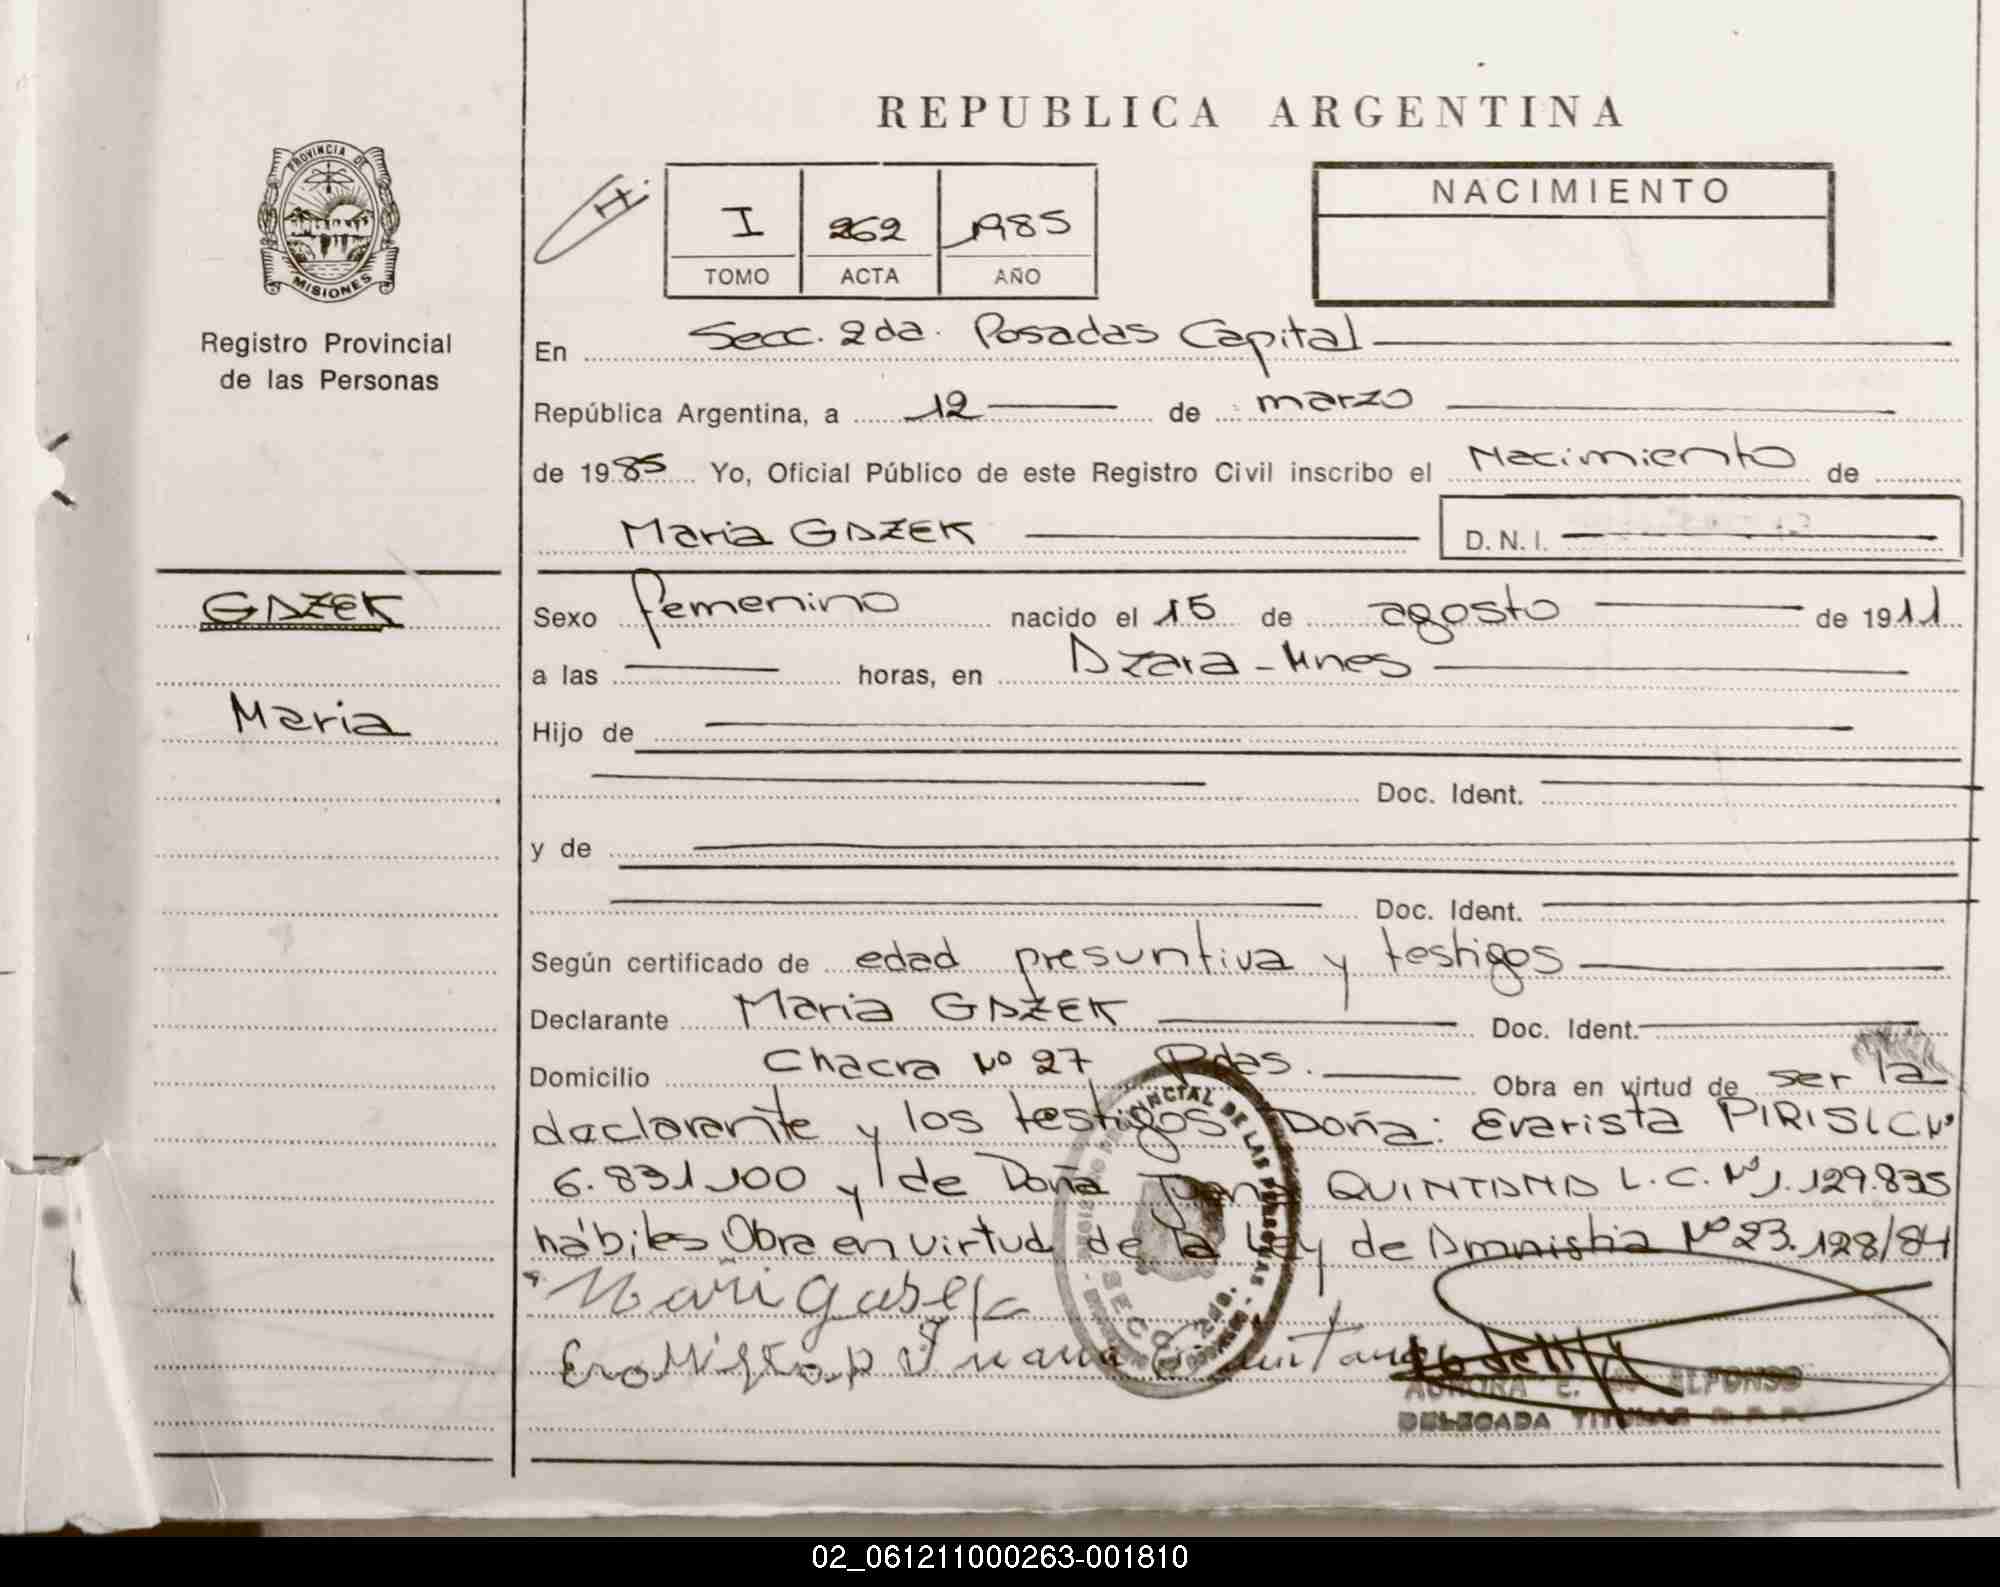 REPUBLICA ARGENTINA
PROVINCIA DE
MISIONES
Registro Provincial
de las Personas
H.
I 262 1985
TOMO ACTA AÑO
NACIMIENTO
En Secc. 2da. Posadas Capital
República Argentina, a 12 de marzo
de 1985 Yo, Oficial Público de este Registro Civil inscribo el Nacimiento de
Maria GAZEK D.N.I.
GAZEK
Maria
Sexo femenino nacido el 15 de agosto de 1911
a las horas, en Azara - Mnes
Hijo de
Doc. Ident.
y de
Doc. Ident.
Según certificado de edad presuntiva y testigos
Declarante Maria GAZEK Doc. Ident.
Domicilio Chacra Nº 27 Pdas. Obra en virtud de ser la
declarante y los testigos Doña: Evarista PIRIS L.C. Nº
6.831.100 y de Doña Juana QUINTANA L.C. Nº 1.129.835
hábiles Obra en virtud de la Ley de Amnistia Nº 23.128/84
Juana Quintana
AURORA E. ALFONSO
DELEGADA TITULAR R.P.P.
02_061211000263-001810